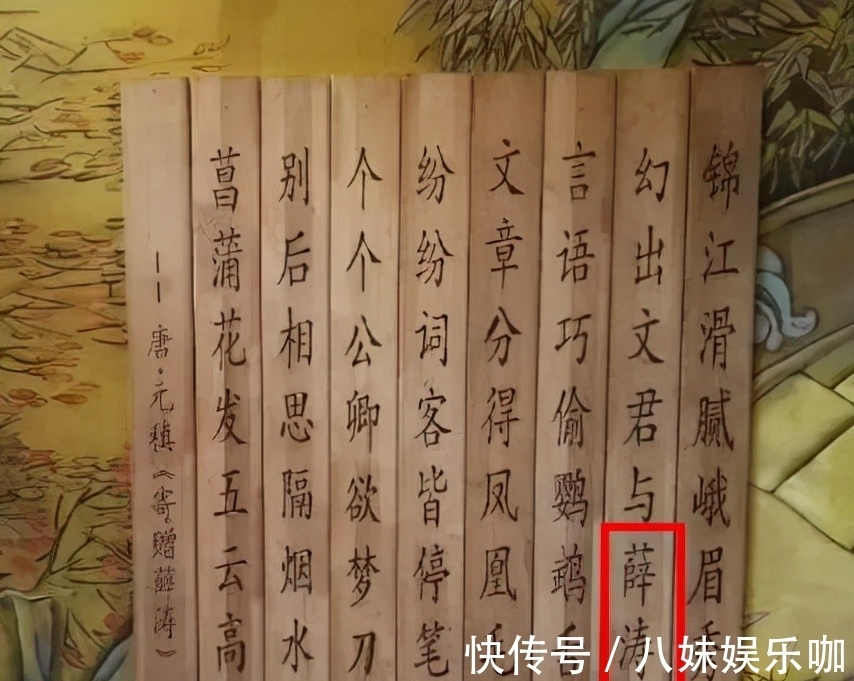 锦江滑腻峨眉
幻出文君与薛涛
言语巧偷鹦鹉
文章分得凤凰
纷纷词客皆停笔
个个公卿欲梦刀
别后相思隔烟水
菖蒲花发五云高
——唐。元稹《寄赠薛涛》
快传号/八妹娱乐咖